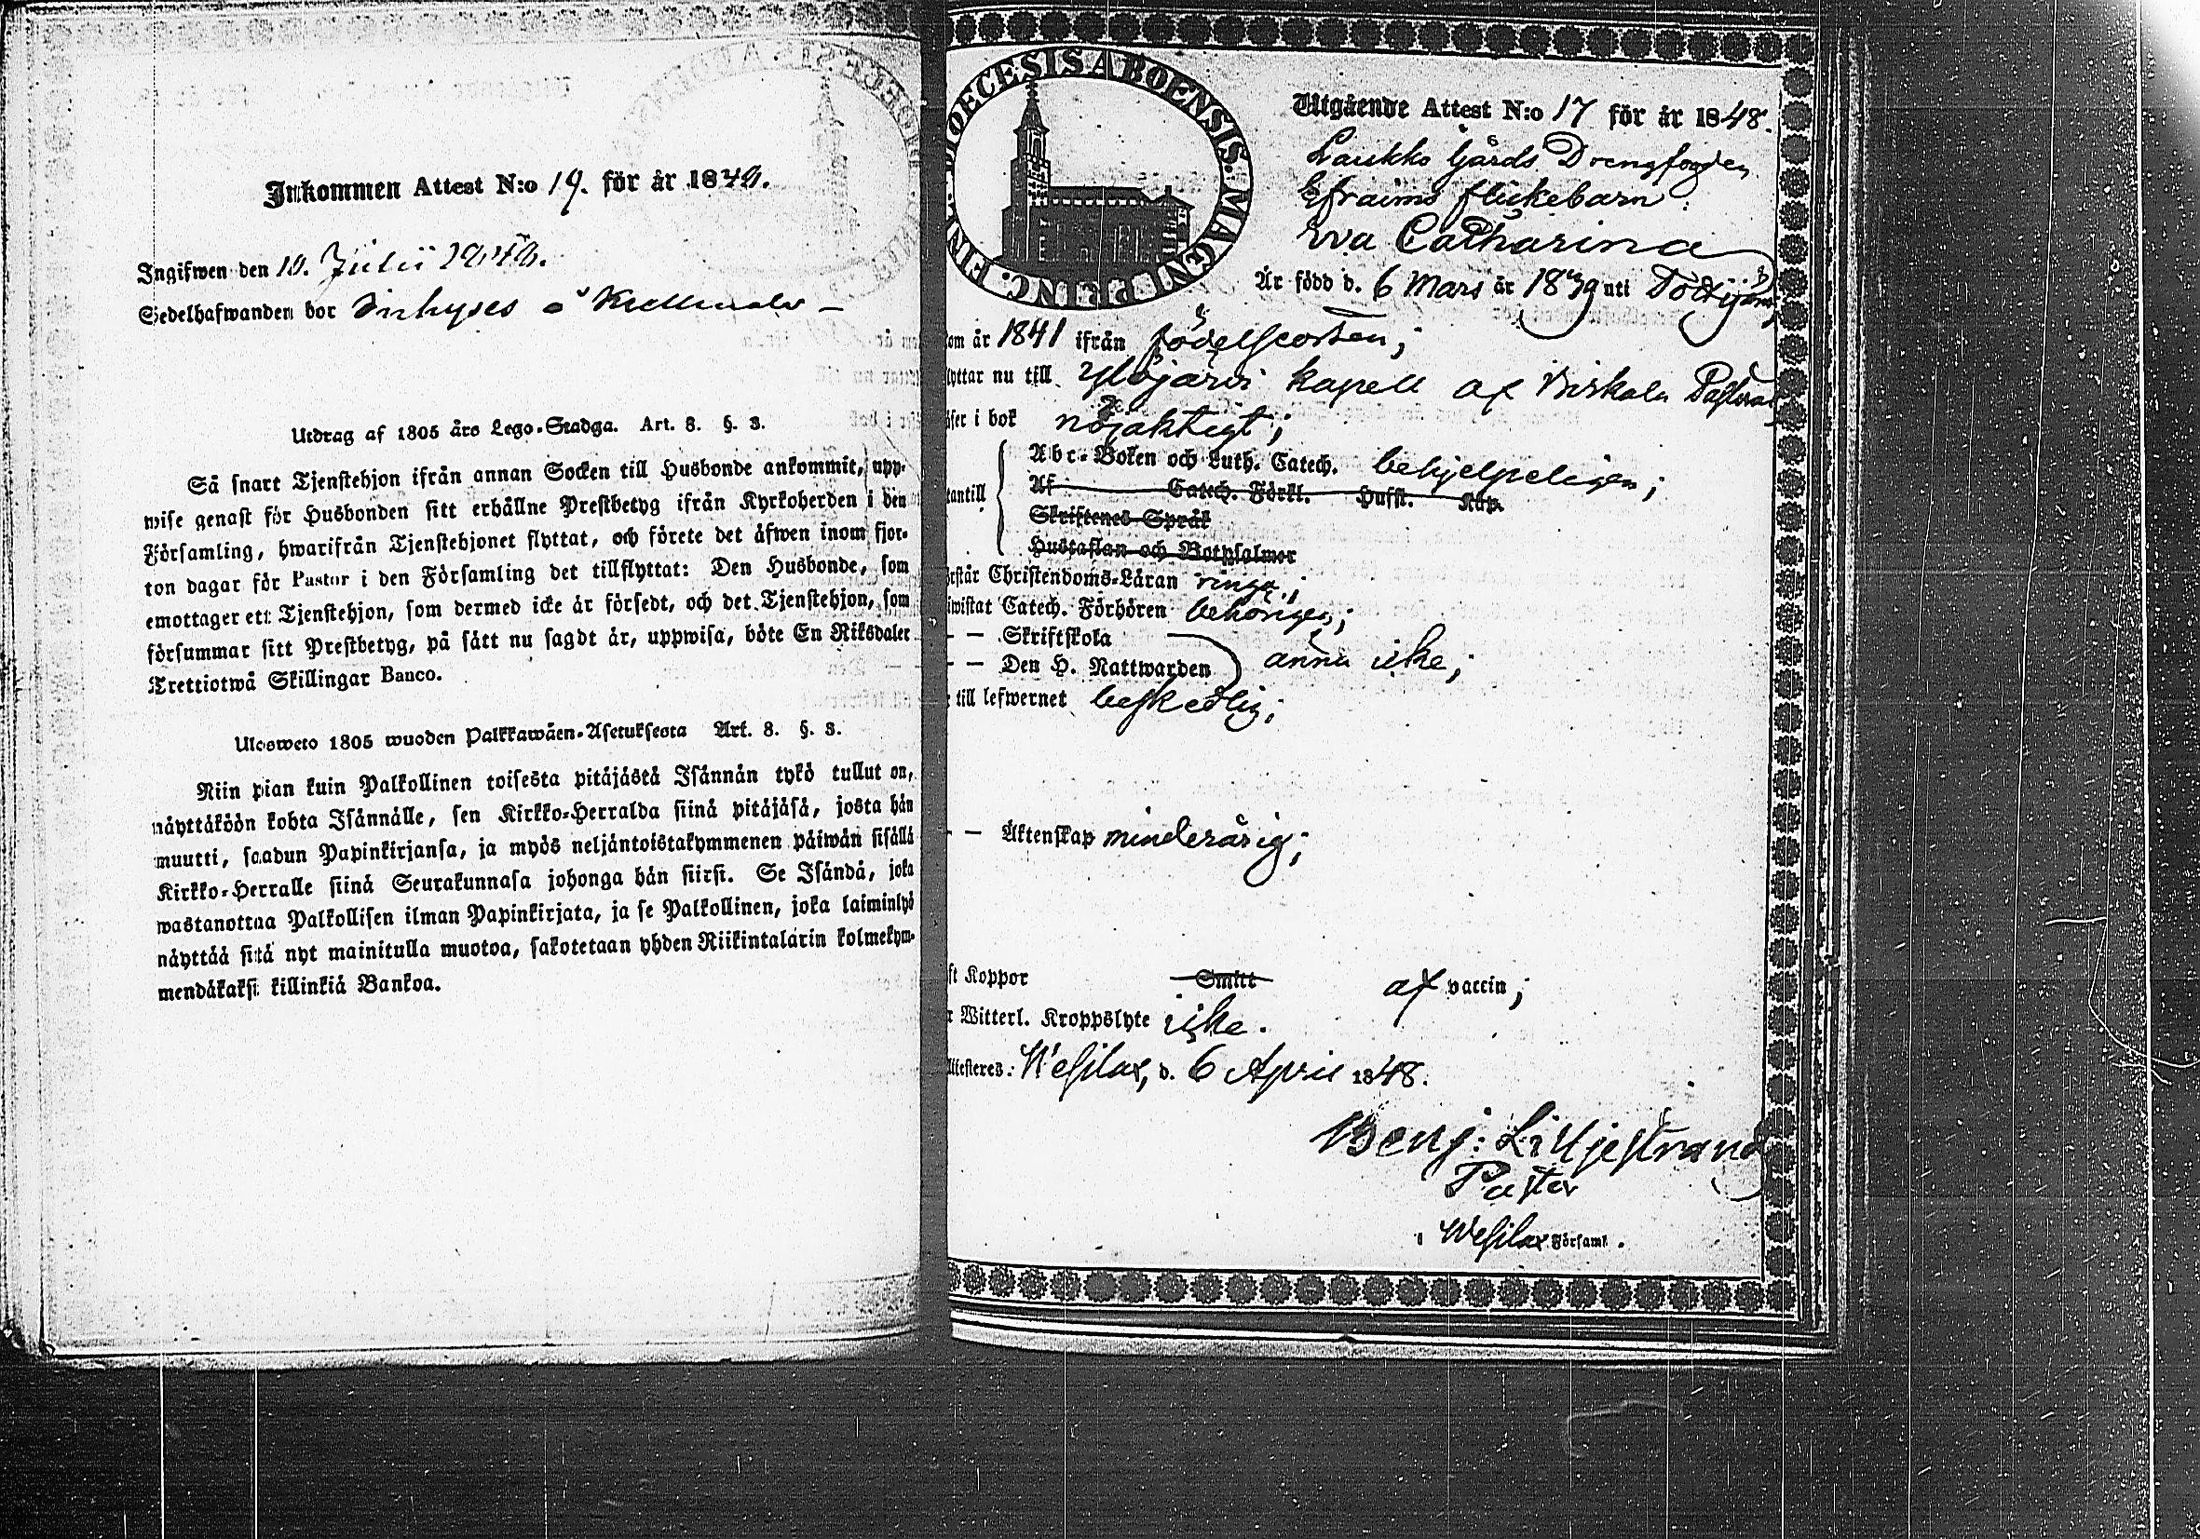 Inkommen Attest N:o 19. för år 1849.
Ingifwen den 10. Julii 1849.
Sedelhafwanden bor Inhyses å
Utdrag af 1805 års Lego-Stadga. Art. 8. §. 3.
Så snart Tjenstehjon ifrån annan Socken till Husbonde ankommit, upp-
wise genast för Husbonden sitt erhållne Prestbetyg ifrån Kyrkoherden i den
Församling, hwarifrån Tjenstehjonet flyttat, och förete det äfwen inom fjor-
ton dagar för Pastor i den Församling det tillflyttat: Den Husbonde, som
emottager ett Tjenstehjon, som dermed icke är försedt, och det Tjenstehjon, som
försummar sitt Prestbetyg, på sätt nu sagdt är, uppwisa, böte En Riksdaler
Trettiotwå Skillingar Banco.
Ulosweto 1805 wuoden Palkkawäen-Asetuksesta Art. 8. §. 3.
Niin pian kuin Palkollinen toisesta pitäjästä Isännän tykö tullut on,
näyttäköön kohta Isännälle, sen Kirkko-Herralda siinä pitäjäsä, josta hän
muutti, saadun Papinkirjansa, ja myös neljäntoistakymmenen päiwän sisällä
Kirkko-Herralle siinä Seurakunnasa johonga hän siirsi. Se Isändä, joka
wastanottaa Palkollisen ilman Papinkirjata, ja se Palkollinen, joka laiminlyö
näyttää sitä nyt mainitulla muotoa, sakotetaan yhden Riikintalarin kolmekym-
mendäkaksi killinkiä Bankoa.
DIOECESIS ABOENSIS. MAGNI PRINC. FINL.
Utgående Attest N:o 17 för år 1848.
Laukko Gårds Drengfogden
Efraims flickebarn
Eva Catharina
Är född d. 6 Mars år 1839 uti
om år 1841 ifrån födelseorten;
lyttar nu till Ylöjärvi kapell af Birkala Pastorat
äser i bok nöjaktigt;
Abc-Boken och Luth. Catech. behjelpeligen;
tantill Af Catech. Förkl. Hufst. Kap.
Skriftenes Språk
Hustaflan och Botpsalmer
örstår Christendoms-Läran ringa;
iwistat Catech. Förhören behörigen;
— — Skriftskola
— — Den H. Nattwarden ännu icke;
r till lefwernet beskedlig;
— — Äktenskap minderårig;
ft Koppor Smitt af vaccin;
r Witterl. Kroppslyte icke.
Attesteres: Wesilax, d. 6 April 1848.
Benj: Liljestrand
Pastor
i Wesilax Församl.